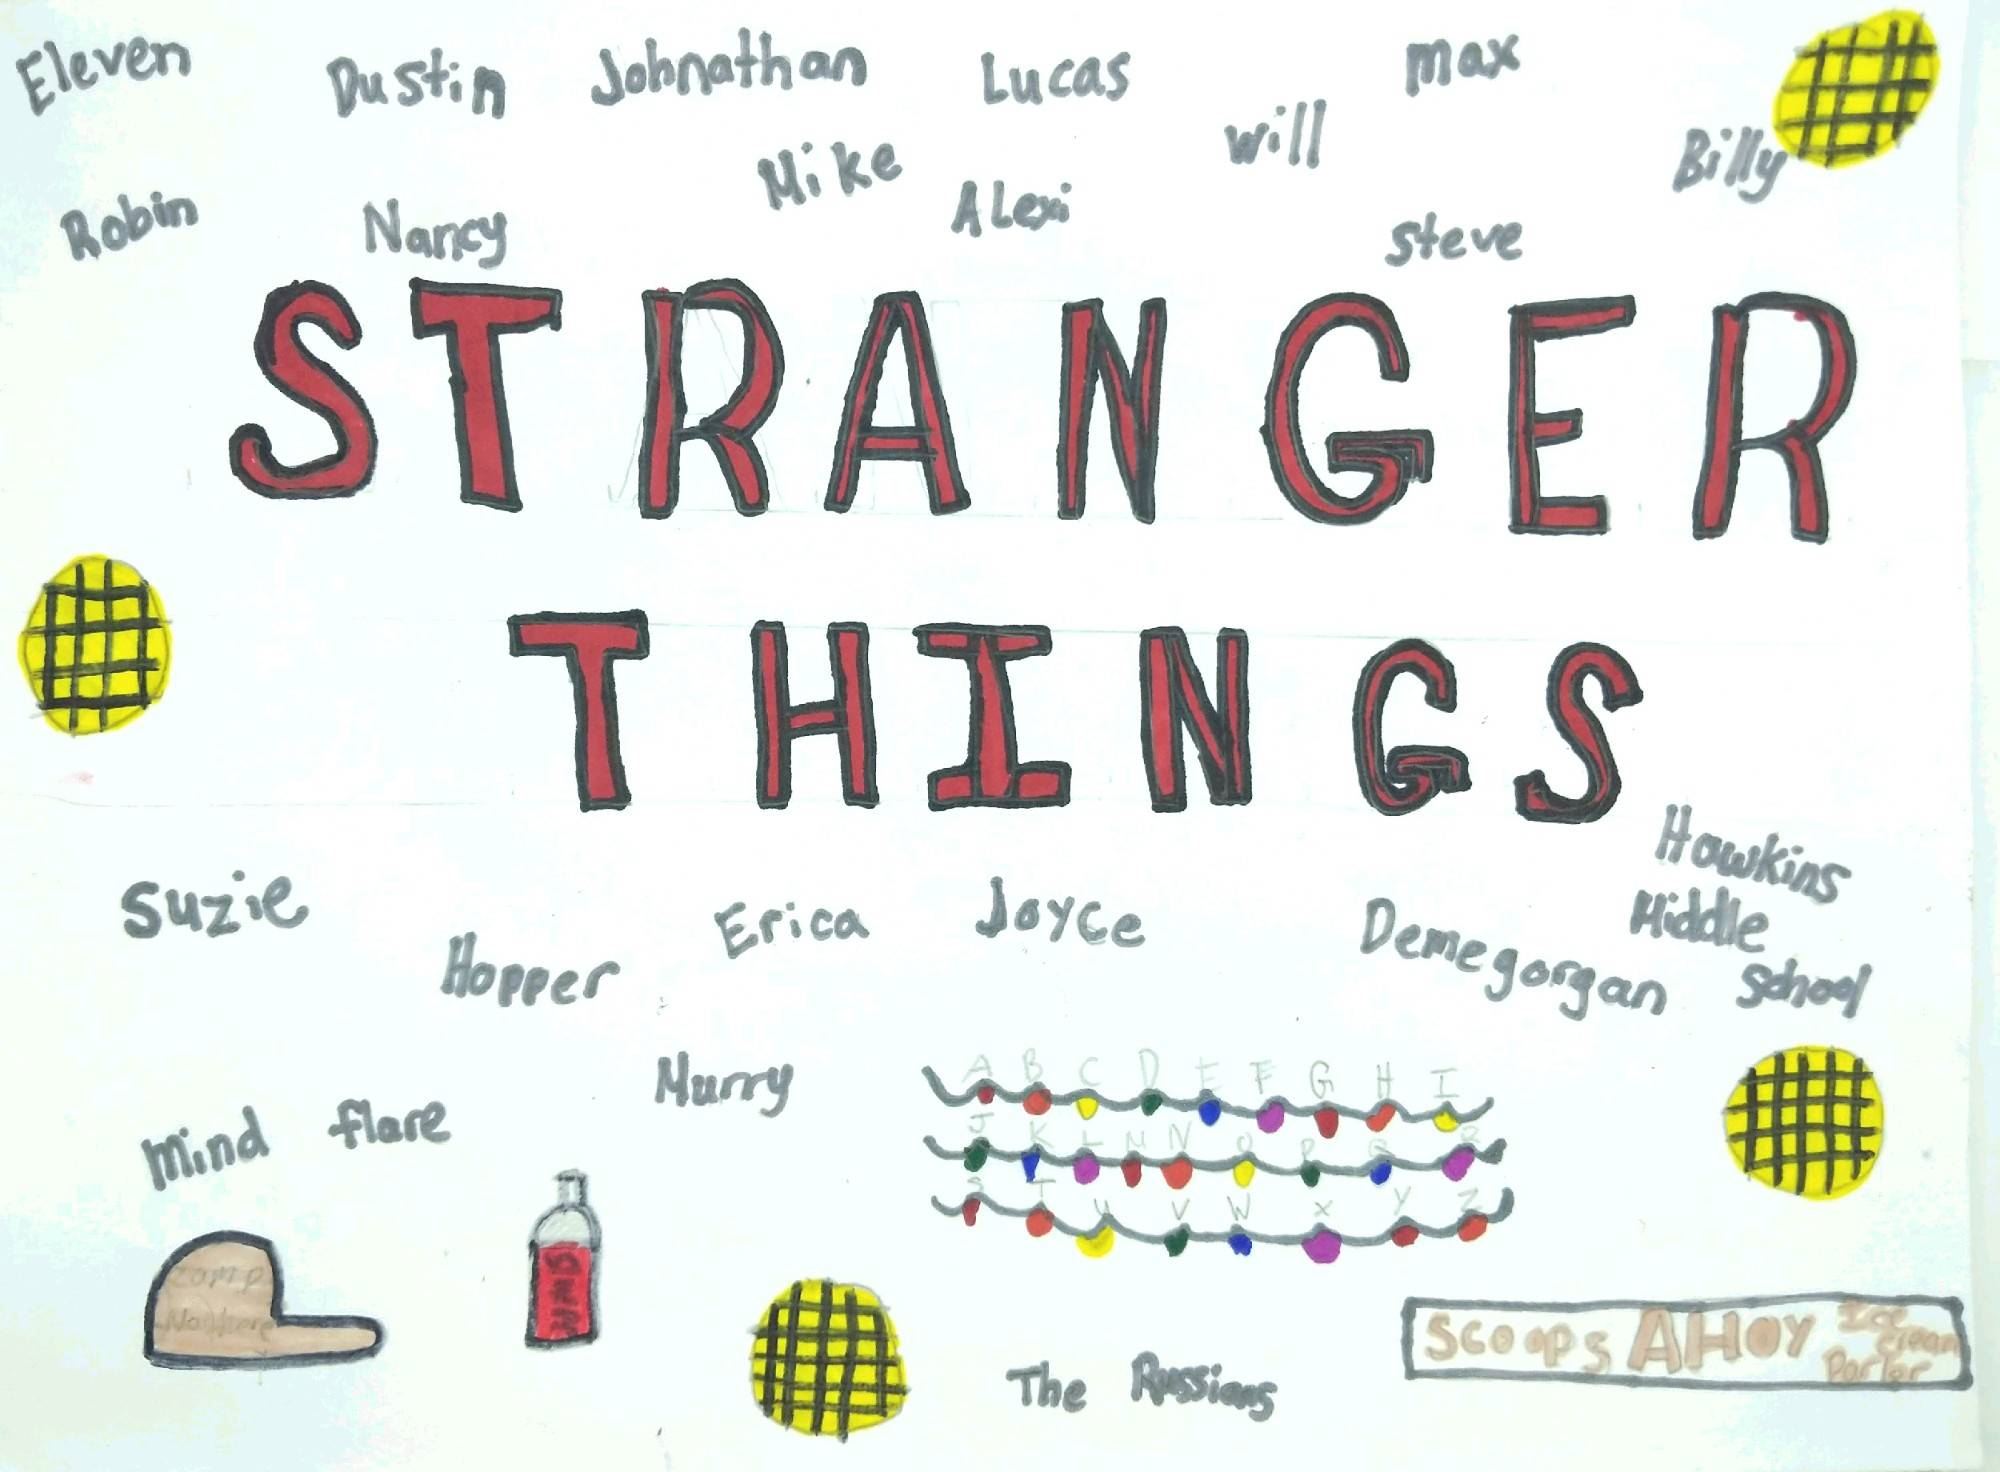 Eleven
Dustin
Johnathan
Lucas
max
will
Mike
Billy
Robin
Nancy
Alexi
Steve
STRANGER
THINGS
Suzie
Hopper
Erica
Joyce
Demegorgan
Hawkins
Middle
School
Murry
mind flare
A B C D E F G H I
J K L M N O P Q R
S T U V W X Y Z
camp
Nowhere
The Russians
Scoops AHOY Ice
Cream
Parler